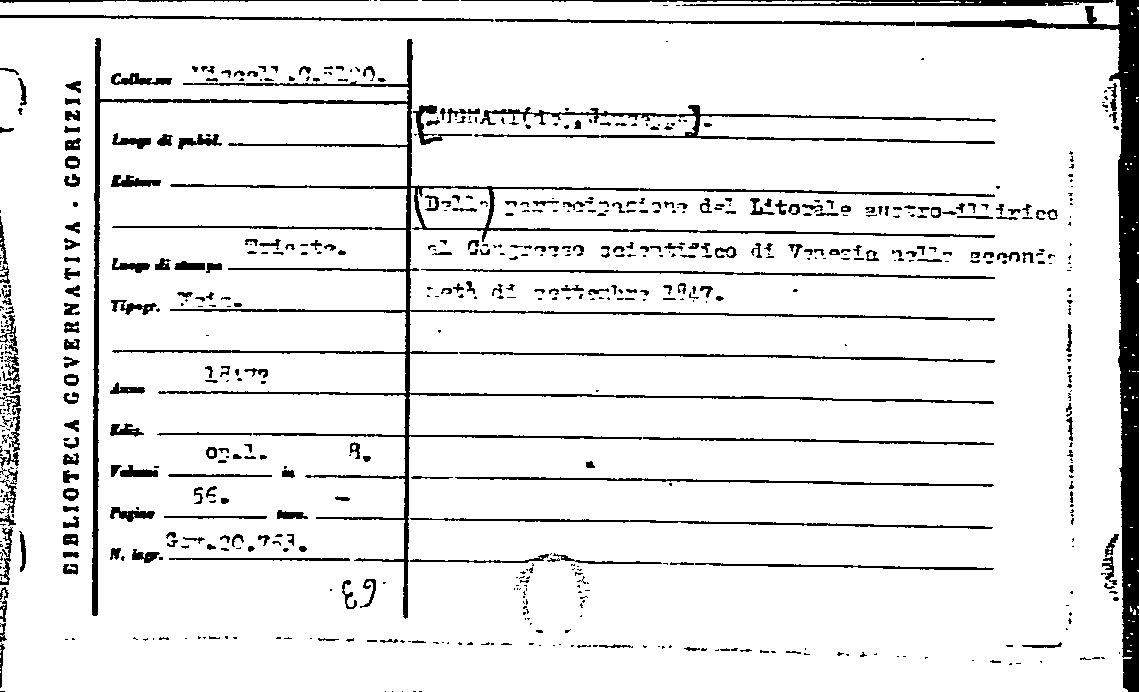 BIBLIOTECA GOVERNATIVA - GORIZIA
Collocaz. Miscell.
Luogo di pubbl.
Editore
Luogo di stampa Trieste.
Tipogr.
Anno 1847?
Ediz.
Volumi op.1. in 8.
Pagine 56. tavv. -
N. ingr. Gov.20.763.
Giuseppe].
(Della) partecipazione del Litorale austro-illirico
al Congresso scientifico di Venezia nella seconda
metà di settembre 1847.